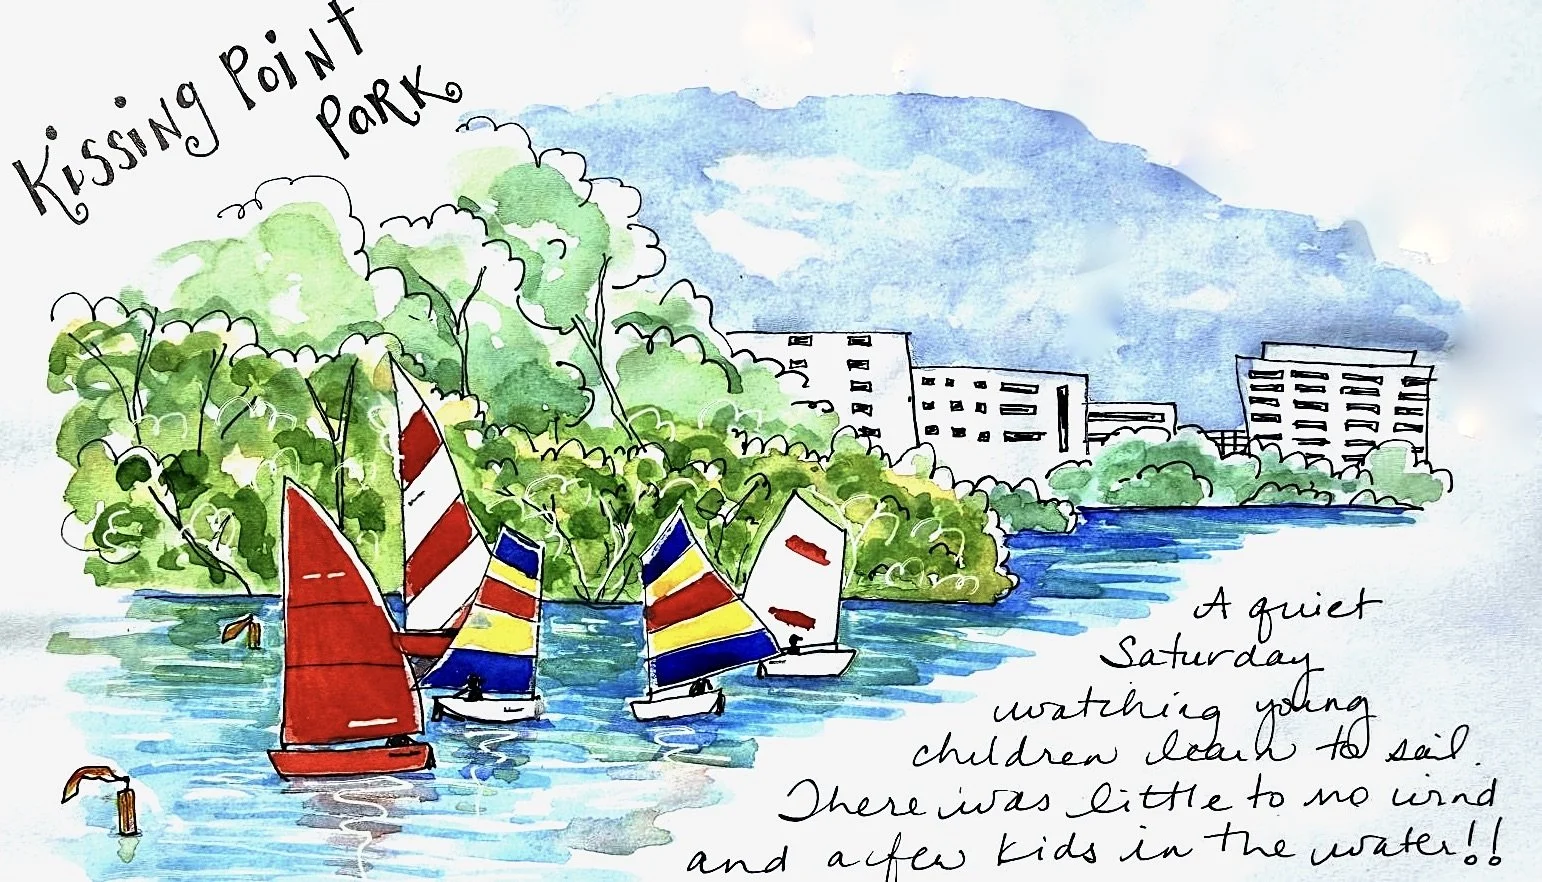 Kissing Point
Park
A quiet
Saturday
watching young
children learn to sail.
There was little to no wind
and a few kids in the water!!